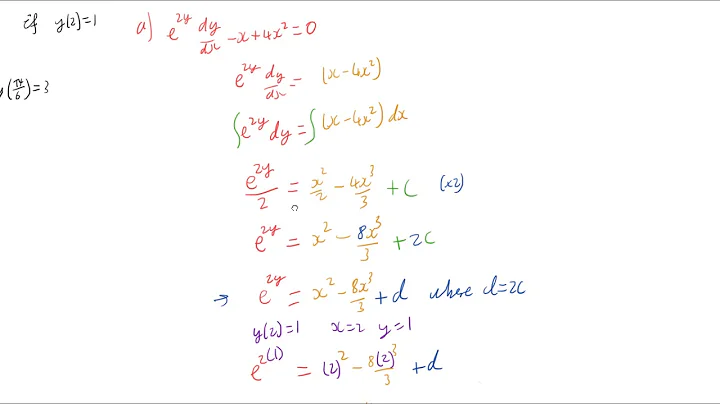 if y(2)=1
a) e^{2y} dy/dx - x + 4x² = 0
e^{2y} dy/dx = (x - 4x²)
y(π/6) = 3
∫e^{2y} dy = ∫(x - 4x²) dx
e^{2y}/2 = x²/2 - 4x³/3 + C (x2)
e^{2y} = x² - 8x³/3 + 2C
→ e^{2y} = x² - 8x³/3 + d where d=2C
y(2)=1 x=2 y=1
e^{2(1)} = (2)² - 8(2)³/3 + d